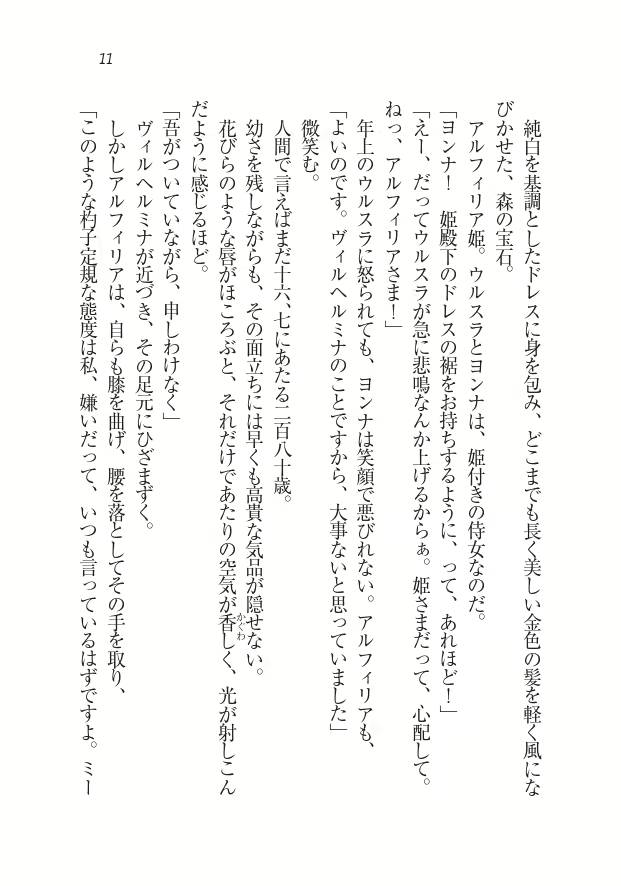 11
　純白を基調としたドレスに身を包み、どこまでも長く美しい金色の髪を軽く風にな
びかせた、森の宝石。
　アルフィリア姫。ウルスラとヨンナは、姫付きの侍女なのだ。
「ヨンナ！　姫殿下のドレスの裾をお持ちするように、って、あれほど！」
「えー、だってウルスラが急に悲鳴なんか上げるからぁ。姫さまだって、心配して。
ねっ、アルフィリアさま！」
　年上のウルスラに怒られても、ヨンナは笑顔で悪びれない。アルフィリアも、
「よいのです。ヴィルヘルミナのことですから、大事ないと思っていました」
微笑む。
　人間で言えばまだ十六、七にあたる二百八十歳。
　幼さを残しながらも、その面立ちには早くも高貴な気品が隠せない。
　花びらのような唇がほころぶと、それだけであたりの空気が香しく、光が射しこん
かぐわ
だように感じるほど。
「吾がついていながら、申しわけなく」
　ヴィルヘルミナが近づき、その足元にひざまずく。
　しかしアルフィリアは、自らも膝を曲げ、腰を落としてその手を取り、
「このような杓子定規な態度は私、嫌いだって、いつも言っているはずですよ。ミー